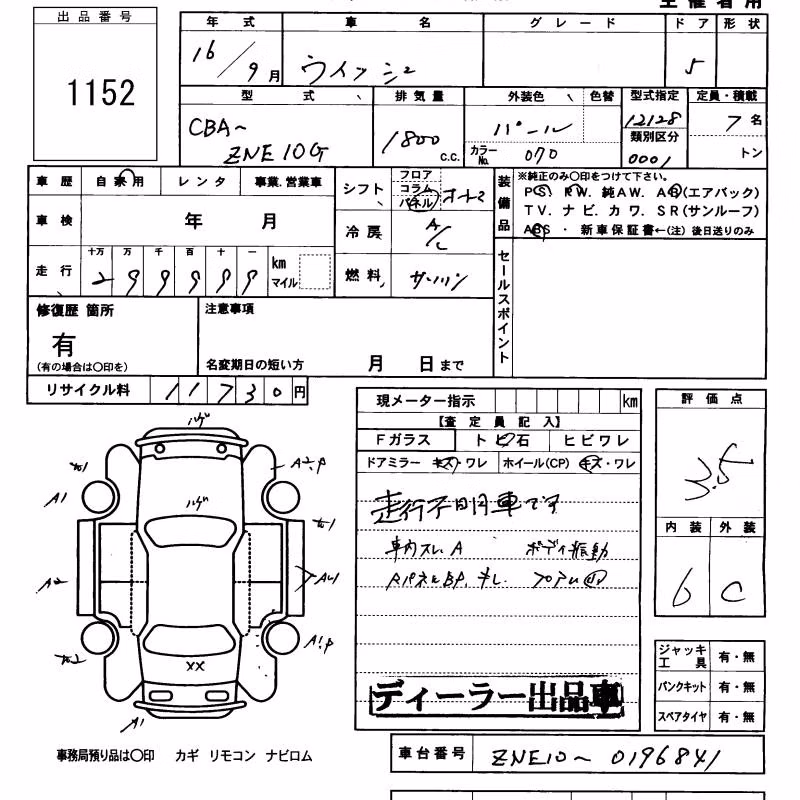 出品番号
1152
年式 車名 グレード ドア 形状
16/9月 ウイッシュ 5
型式 排気量 外装色 色替 型式指定 定員・積載
CBA~ ZNE10G 1800 c.c. パール 12128 7名
カラーNo. 070 類別区分 0001 トン
車歴 自家用 レンタ 事業.営業車
車検 年 月
走行 十万 万 千 百 十 一 km マイル
299999
シフト フロア コラム パネル オートマ
冷房 A/C
燃料 ガソリン
装備品 ※純正のみ〇印をつけて下さい。
PS. PW. 純AW. AB(エアバック)
TV. ナビ. カワ. SR(サンルーフ)
ABS ・ 新車保証書←(注) 後日送りのみ
セールスポイント
修復歴 箇所
有
(有の場合は〇印を)
注意事項
名変期日の短い方 月 日まで
リサイクル料 11730円
現メーター指示 km
【査定員記入】
Fガラス トビ石 ヒビワレ
ドアミラー キズ・ワレ ホイール(CP) キズ・ワレ
走行不明車です
車内スレ.A ボディ振動
RパネルBP.キレ. フロアム凹
ディーラー出品車
評価点
3.5
内装 外装
6 C
ジャッキ工具 有・無
パンクキット 有・無
スペアタイヤ 有・無
ハゲ
A2.P
キズ1
A1
ハゲ
キズ1
A2
A4
A1.P
キズ2
XX
A1
事務局預り品は〇印 カギ リモコン ナビロム
車台番号 ZNE10~0196841